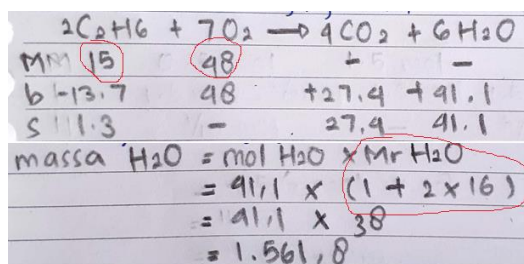 2C2H6 + 7O2 → 4CO2 + 6H2O
M 15 48 - -
b -13.7 48 +27.4 +41.1
S 1.3 - 27.4 41.1
massa H2O = mol H2O x Mr H2O
= 41,1 x (1 + 2 x 16)
= 41,1 x 38
= 1.561,8